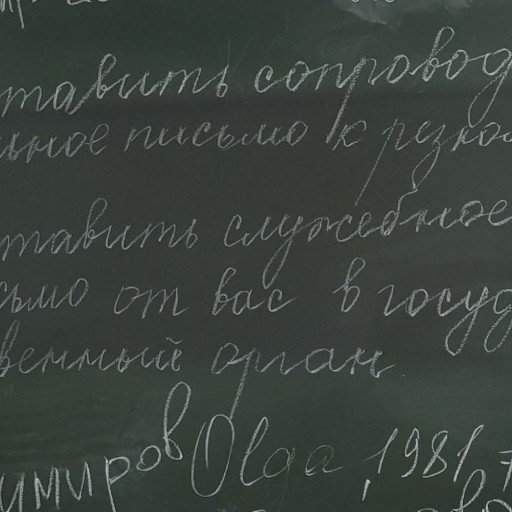 ставить сопровод
ьное письмо к резюм
ставить служебное
сьмо от вас в госуд
венный орган.
имиров Olga 1981,